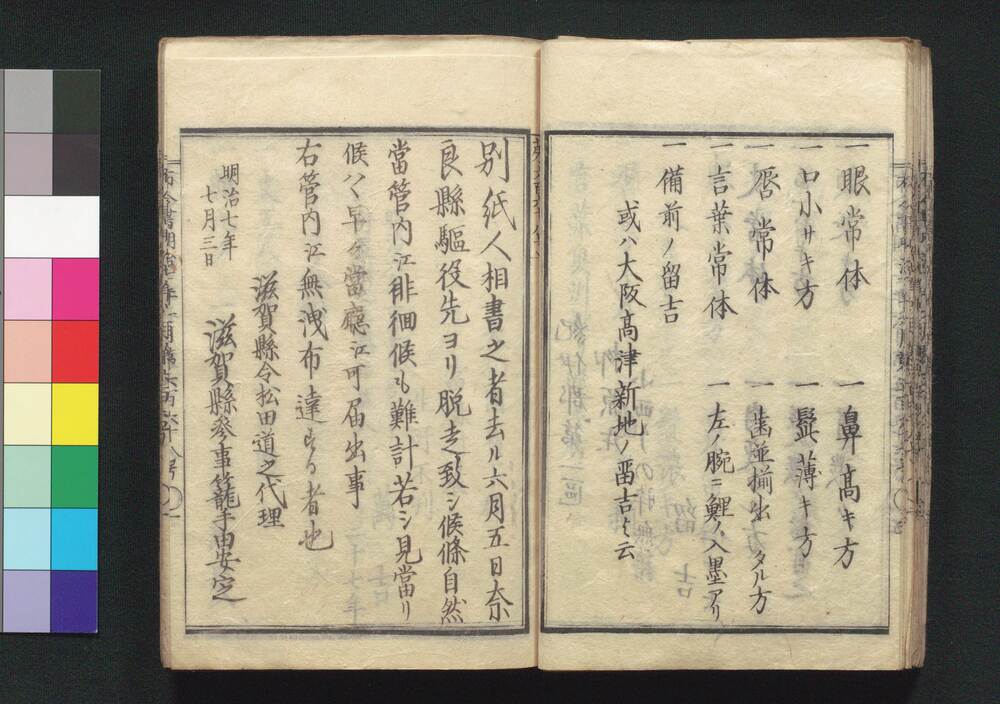 一眼常体　一鼻高キ方
一口小サキ方　一髭薄キ方
一唇常体　一歯並揃出タル方
一言葉常体　一左ノ腕ニ鯉ノ入墨アリ
一備前ノ留吉
或ハ大阪髙津新地ノ畱吉ト云
別紙人相書之者去ル六月五日奈
良縣驅役先ヨリ脱走致シ候條自然
當管内江徘徊候も難計若シ見當リ
候ハヽ早々當廳江可届出事
右管内江無洩布達する者也
明治七年
七月三日
滋賀縣令松田道之代理
滋賀縣参事籠手田安定